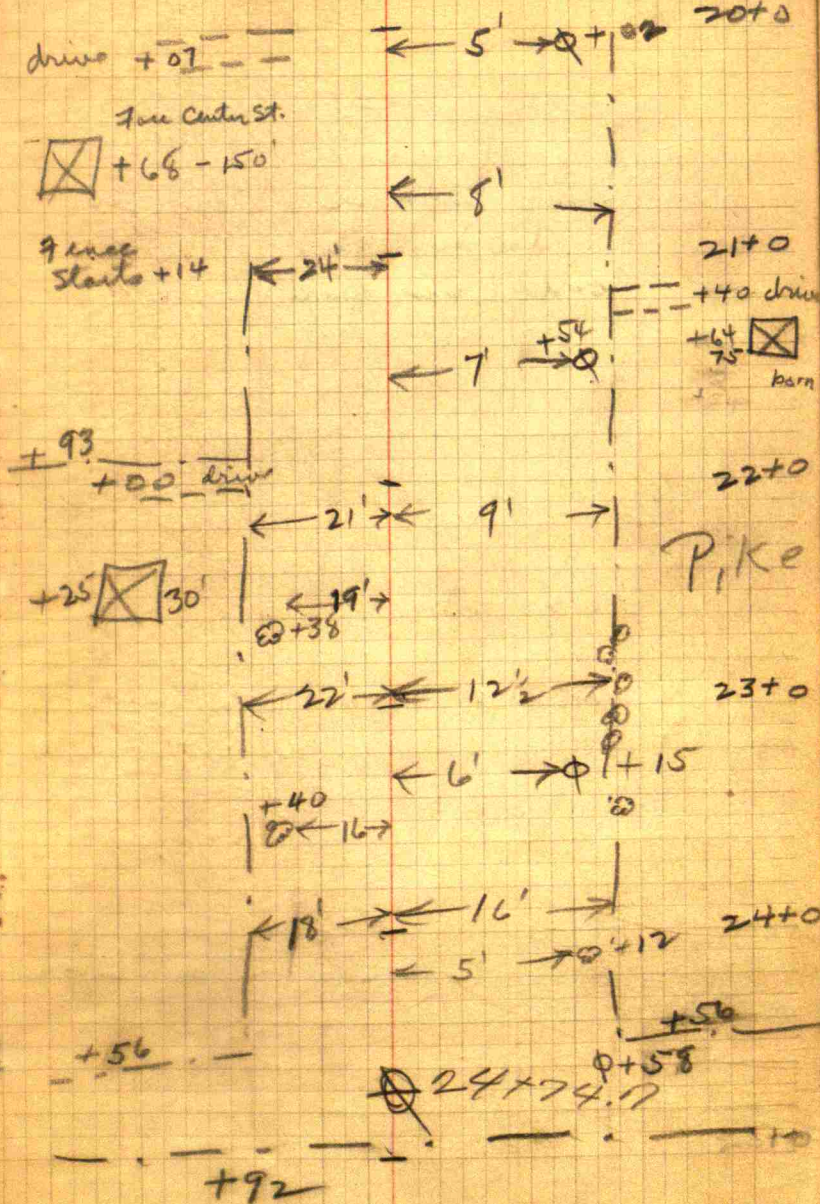 20+0
drive +07 5' + 02
Face Center St.
+68 - 150'
8'
21+0
Fence
Starts +14 24'
+40 drive
+54
7'
+64
75
barn
+93
+00 drive
22+0
21' 9'
Pike
+25 30' 19'
+38
22' 12'2 23+0
6' +15
+40
16
18' 16' 24+0
5' +12
+56
+56
+58
24+74.7
+92